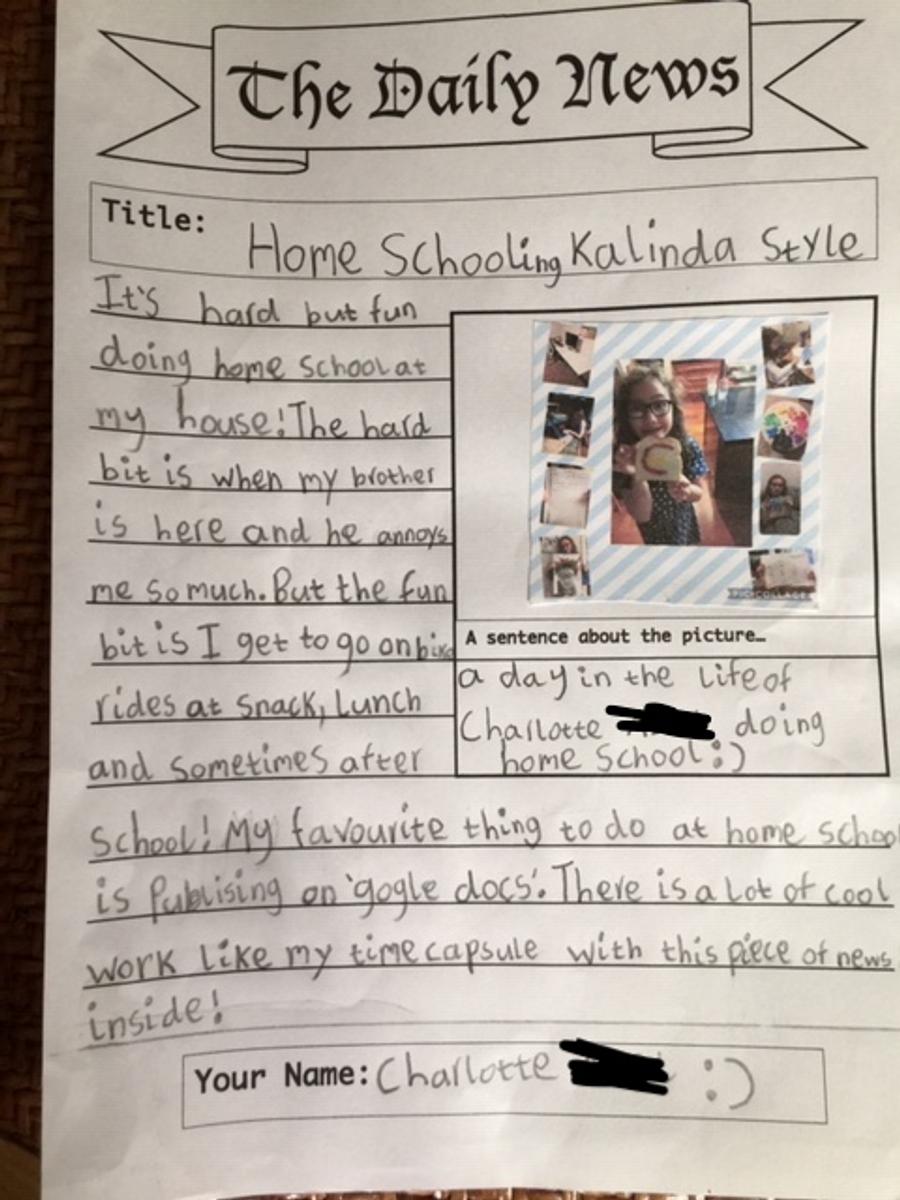 The Daily News
Title: Home Schooling Kalinda Style
It's hard but fun
doing home school at
my house! The hard
bit is when my brother
is here and he annoys
me so much. But the fun
bit is I get to go on bike
rides at snack, Lunch
and sometimes after
PIC•COLLAGE
A sentence about the picture…
a day in the life of
Charlotte doing
home School :)
School! My favourite thing to do at home school
is Publising on 'gogle docs'. There is a Lot of cool
work like my time capsule with this piece of news
inside!
Your Name: Charlotte :)